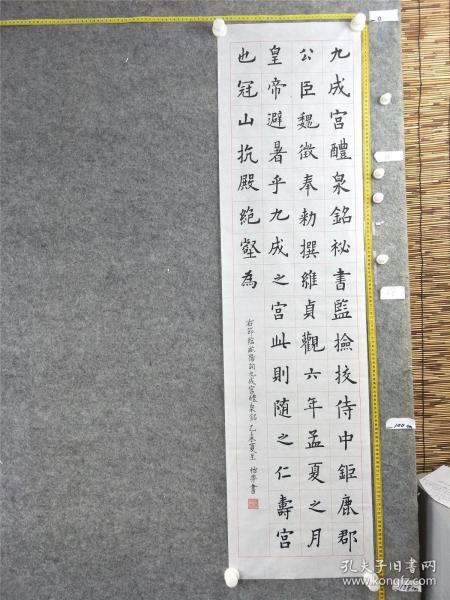 九成宮醴泉銘祕書監撿挍侍中鉅鹿郡
公臣魏徵奉勅撰維貞觀六年孟夏之月
皇帝避暑乎九成之宮此則隨之仁壽宮
也冠山抗殿絕壑為
右節臨歐陽詢九成宮醴泉銘 乙未夏至 書
孔夫子旧书网